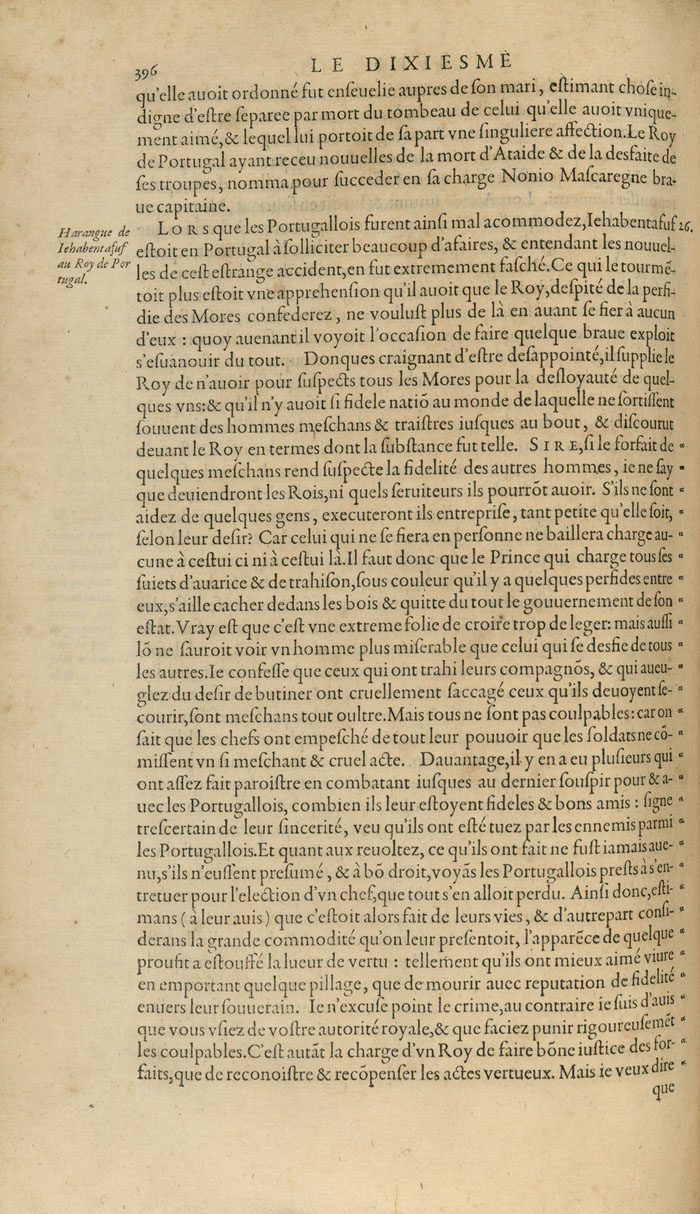 396
LE DIXIESME
qu'elle auoit ordonné fut enſeuelie aupres de ſon mari, eſtimant choſe in-
digne d'eſtre ſeparee par mort du tombeau de celui qu'elle auoit vnique-
ment aimé,& lequel lui portoit de ſa part vne ſinguliere affection.Le Roy
de Portugal ayant receu nouuelles de la mort d'Ataide & de la desfaite de
ſes troupes, nomma pour ſucceder en ſa charge Nonio Maſcaregne bra-
ue capitaine.
Harangue de
Iehabentafuf
au Roy de Por
tugal.
LORS que les Portugallois furent ainſi mal acommodez,Iehabentafuf 26.
eſtoit en Portugal à ſolliciter beaucoup d'afaires, & entendant les nouuel-
les de ceſt eſtrange accident,en fut extremement faſché.Ce qui le tourmē-
toit plus eſtoit vne apprehenſion qu'il auoit que le Roy,deſpité de la perfi-
die des Mores confederez, ne vouluſt plus de là en auant ſe fier à aucun
d'eux : quoy auenant il voyoit l'occaſion de faire quelque braue exploit
s'eſuanouir du tout. Donques craignant d'eſtre deſappointé,il ſupplie le
Roy de n'auoir pour ſuſpects tous les Mores pour la desloyauté de quel-
ques vns:& qu'il n'y auoit ſi fidele natiō au monde de laquelle ne ſortiſſent
ſouuent des hommes meſchans & traiſtres iuſques au bout, & diſcourut
deuant le Roy en termes dont la ſubſtance fut telle. SIRE,ſi le forfait de "
quelques meſchans rend ſuſpecte la fidelité des autres hommes, ie ne ſay "
que deuiendront les Rois,ni quels ſeruiteurs ils pourrōt auoir. S'ils ne ſont "
aidez de quelques gens, executeront ils entrepriſe, tant petite qu'elle ſoit, "
ſelon leur deſir? Car celui qui ne ſe fiera en perſonne ne baillera charge au- "
cune à ceſtui ci ni à ceſtui là.Il faut donc que le Prince qui charge tous ſes "
ſuiets d'auarice & de trahiſon,ſous couleur qu'il y a quelques perfides entre "
eux,s'aille cacher dedans les bois & quitte du tout le gouuernement de ſon "
eſtat.Vray eſt que c'eſt vne extreme folie de croire trop de leger: mais auſſi "
lō ne ſauroit voir vn homme plus miſerable que celui qui ſe desfie de tous "
les autres.Ie confeſſe que ceux qui ont trahi leurs compagnōs, & qui aueu- "
glez du deſir de butiner ont cruellement ſaccagé ceux qu'ils deuoyent ſe- "
courir,ſont meſchans tout oultre.Mais tous ne ſont pas coulpables: car on "
ſait que les chefs ont empeſché de tout leur pouuoir que les ſoldats ne cō- "
miſſent vn ſi meſchant & cruel acte. Dauantage,il y en a eu pluſieurs qui "
ont aſſez fait paroiſtre en combatant iuſques au dernier ſouſpir pour & a- "
uec les Portugallois, combien ils leur eſtoyent fideles & bons amis : ſigne "
treſcertain de leur ſincerité, veu qu'ils ont eſté tuez par les ennemis parmi "
les Portugallois.Et quant aux reuoltez, ce qu'ils ont fait ne fuſt iamais aue- "
nu,s'ils n'euſſent preſumé, & à bō droit,voyās les Portugallois preſts à s'en- "
tretuer pour l'election d'vn chef,que tout s'en alloit perdu. Ainſi donc,eſti- "
mans ( à leur auis ) que c'eſtoit alors fait de leurs vies, & d'autrepart conſi- "
derans la grande commodité qu'on leur preſentoit, l'apparēce de quelque "
proufit a eſtouffé la lueur de vertu : tellement qu'ils ont mieux aimé viure "
en emportant quelque pillage, que de mourir auec reputation de fidelité "
enuers leur ſouuerain. Ie n'excuſe point le crime,au contraire ie ſuis d'auis "
que vous vſiez de voſtre autorité royale,& que faciez punir rigoureuſemēt "
les coulpables.C'eſt autāt la charge d'vn Roy de faire bōne iuſtice des for- "
faits,que de reconoiſtre & recōpenſer les actes vertueux. Mais ie veux dire "
que